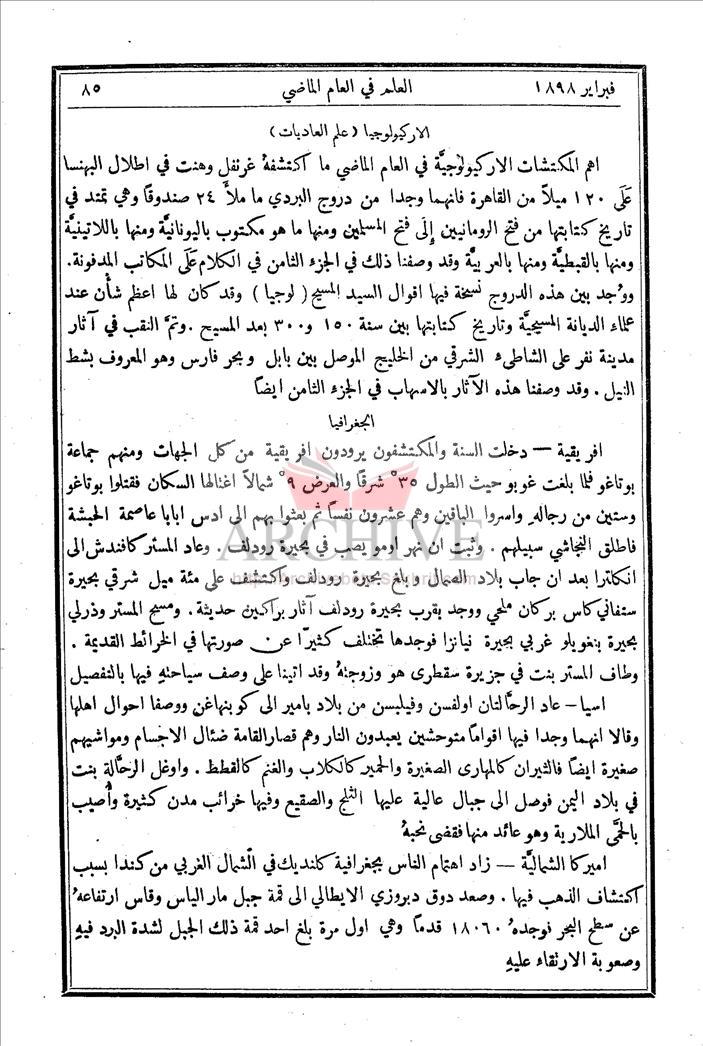 فبراير ١٨٩٨
العلم في العام الماضي
٨٥
الاركيولوجيا (علم العاديات)
اهم المكتشفات الاركيولوجيَّة في العام الماضي ما اكتشفهُ غرنفل وهنت في اطلال البهنسا
عَلَى ١٢٠ ميلاً من القاهرة فانهما وجدا من دروج البردي ما ملأَ ٢٤ صندوقًا وهي تمتد في
تاريخ كتابتها من فتح الرومانيين إِلَى فتح المسلمين ومنها ما هو مكتوب باليونانيَّة ومنها باللاتينيَّة
ومنها بالقبطيَّة ومنها بالعربيَّة وقد وصفنا ذلك في الجزء الثامن في الكلام عَلَى المكاتب المدفونة.
ووُجد بين هذه الدروج نسخة فيها اقوال السيد المسيح (لوجيا) وقد كان لها اعظم شأن عند
علماء الديانة المسيحيَّة وتاريخ كتابتها بين سنة ١٥٠ و٣٠٠ بعد المسيح. وتمَّ النقب في آثار
مدينة نفر على الشاطىء الشرقي من الخليج الموصل بين بابل وبحر فارس وهو المعروف بشط
النيل. وقد وصفنا هذه الآثار بالاسهاب في الجزء الثامن ايضًا
الجغرافيا
افريقية — دخلت السنة والمكتشفون يرودون افريقية من كل الجهات ومنهم جماعة
بوتاغو فلما بلغت غوبو حيث الطول ٣٥° شرقًا والعرض ٩° شمالاً اغتالها السكان فقتلوا بوتاغو
وستين من رجاله واسروا الباقين وهم عشرون نفسًا ثم بعثوا بهم الى ادس ابابا عاصمة الحبشة
فاطلق النجاشي سبيلهم. وثبت ان نهر اومو يصب في بحيرة رودلف. وعاد المستر كافندش الى
انكلترا بعد ان جاب بلاد الصمال وبلغ بحيرة رودلف واكتشف على مئة ميل شرقي بحيرة
ستفاني كاس بركان ملحي ووجد بقرب بحيرة رودلف آثار براكين حديثة. ومسح المستر وذرلي
بحيرة بنغويلو غربي بحيرة نيانزا فوجدها تختلف كثيرًا عن صورتها في الخرائط القديمة.
وطاف المستر بنت في جزيرة سقطرى هو وزوجتهُ وقد اتينا على وصف سياحتهِ فيها بالتفصيل
اسيا — عاد الرحَّالتان اولفسن وفيلبسن من بلاد بامير الى كوبنهاغن ووصفا احوال اهلها
وقالا انهما وجدا فيها اقوامًا متوحشين يعبدون النار وهم قصار القامة ضئال الاجسام ومواشيهم
صغيرة ايضًا فالثيران كالمهارى الصغيرة والحمير كالكلاب والغنم كالقطط. واوغل الرحَّالة بنت
في بلاد اليمن فوصل الى جبال عالية عليها الثلج والصقيع وفيها خرائب مدن كثيرة وأُصيب
بالحمَّى الملارية وهو عائد منها فقضى نحبهُ
اميركا الشماليَّة — زاد اهتمام الناس بجغرافية كلنديك في الشمال الغربي من كندا بسبب
اكتشاف الذهب فيها. وصعد دوق دبروزي الايطالي الى قمة جبل مار الياس وقاس ارتفاعهُ
عن سطح البحر فوجدهُ ١٨٠٦٠ قدمًا وهي اول مرة بلغ احد قمة ذلك الجبل لشدة البرد فيهِ
وصعوبة الارتقاء عليهِ
ARCHIVE